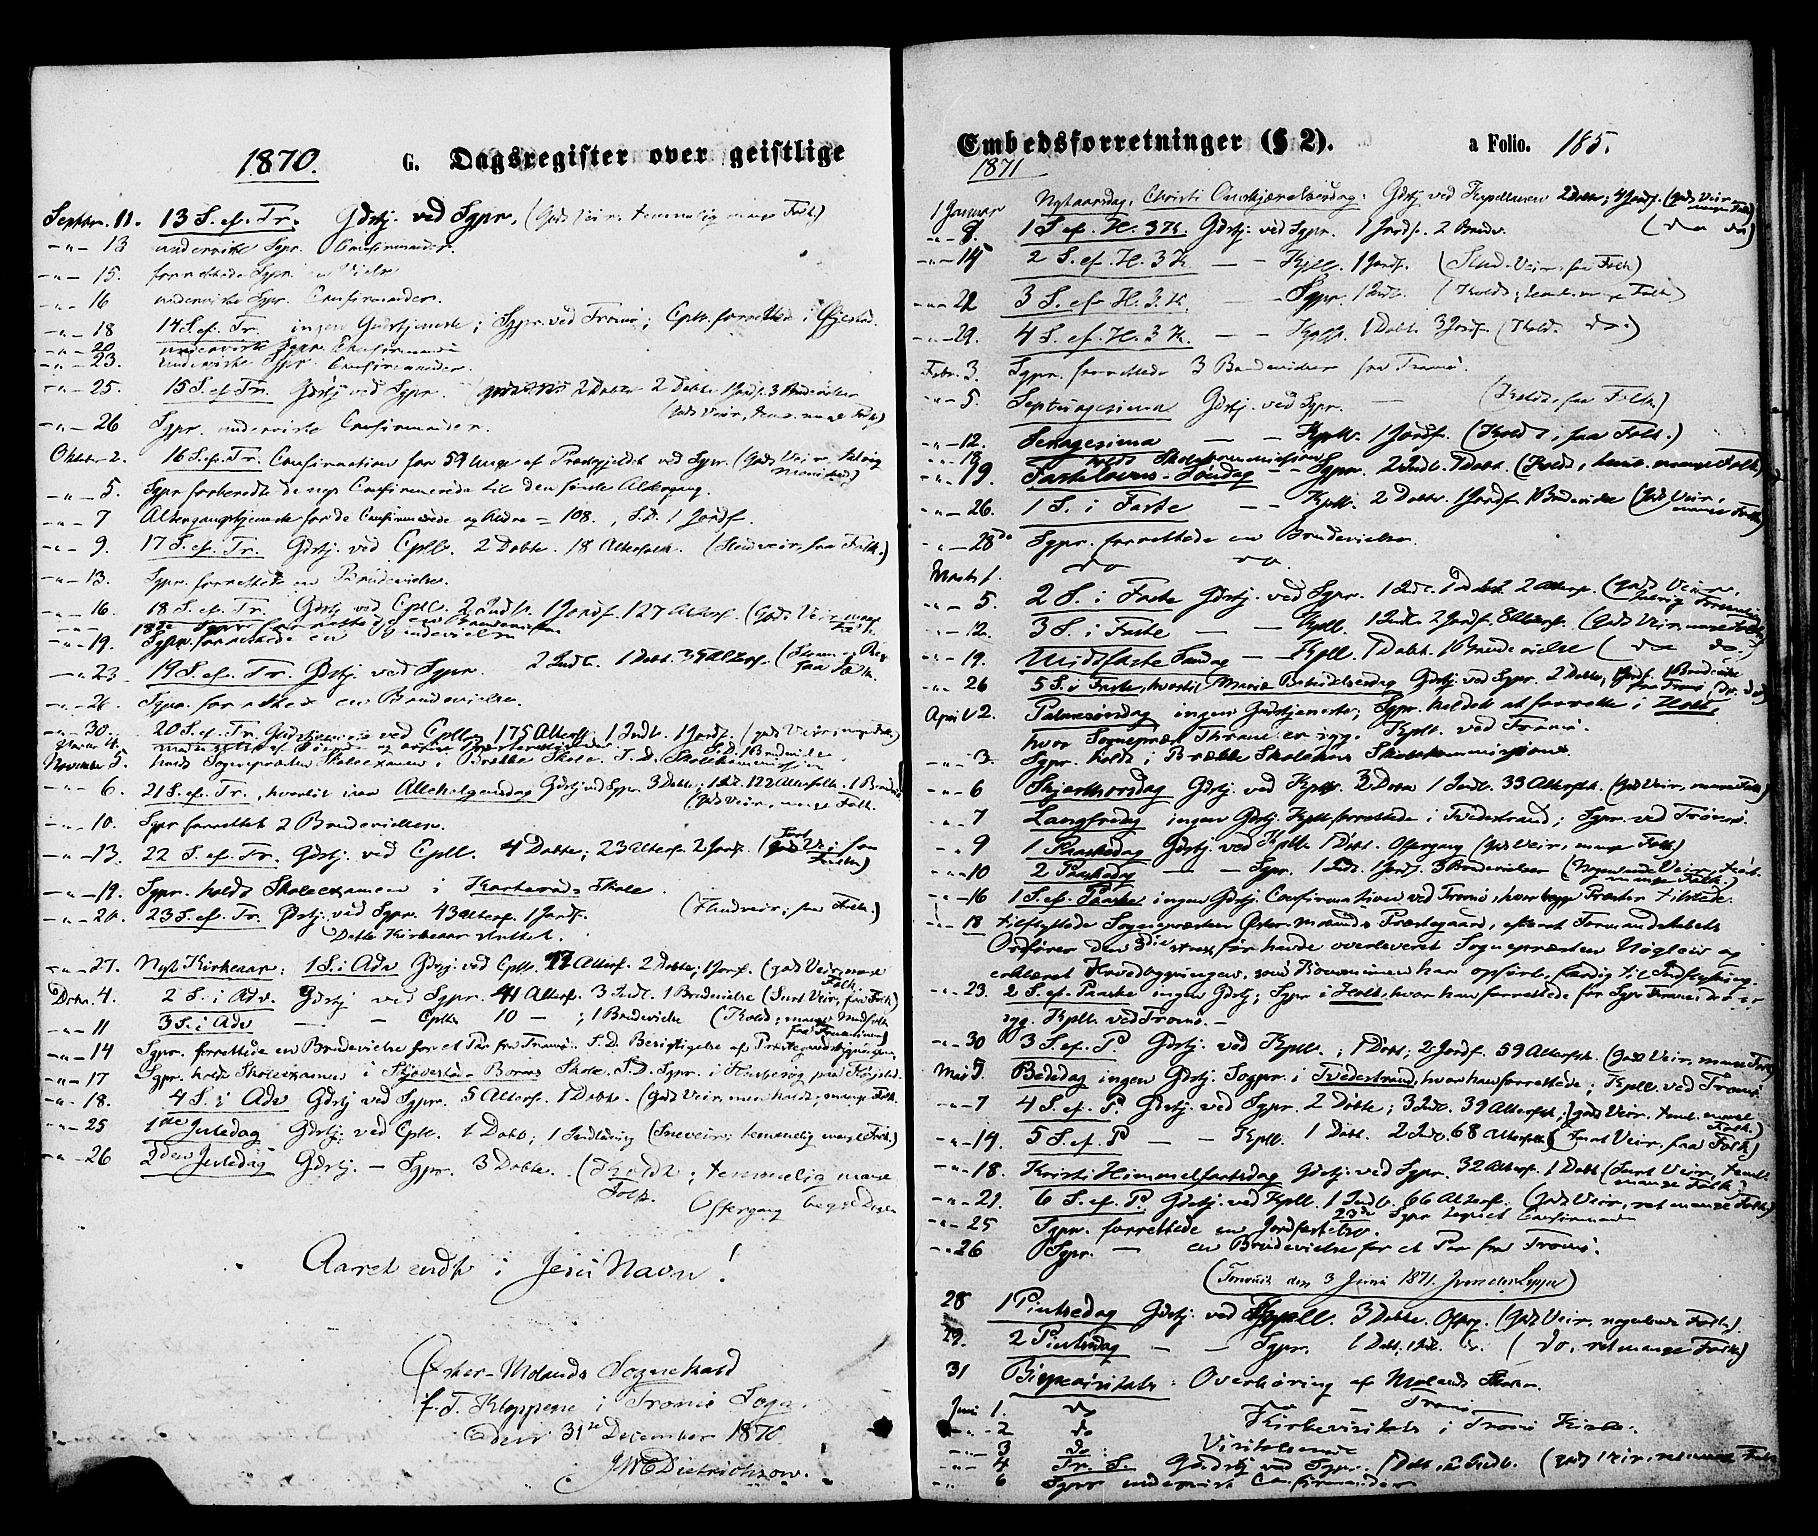 1870. G. Dagsregister over geistlige
Septbr. 11. 13 S. ef. Tr. Gdstj. ved Sgpr. (Godt Veir, temmelig mange Folk)
-"- 13 underviste Sgpr. Confirmander.
-"- 15. forrettede Sgpr. en Vielse
-"- 16 underviste Sgpr. Confirmander.
-"- 18 14 S. ef. Tr. ingen Gudstjeneste; Sgpr. ved Tromö; Cpll. forrettede i Öjestad.
-"- 20 underviste Sgpr. Confirmander
-"- 23. underviste Sgpr. Confirmander.
-"- 25. 15 S. ef. Tr. Gdstj ved Sgpr. 2 Dobte 1 Jordf. 3 Brudevielser
(Godt Veir, tem. mange Folk)
-"- 26 Sgpr. underviste Confirmander.
Oktober 2. 16 S. ef. Tr. Confirmation for 59 Unge af Præstegjeldet ved Sgpr. (Godt Veir, talrig
Menighed)
-"- 5. Sgpr forberedte de nys Confirmerede til den første Altergang.
-"- 7 Altergangstjeneste for de Confirmerede og Andre = 108. S.D. 1 Jordf.
-"- 9. 17 S. ef. Tr. Gdstj ved Cpll. 2 Dobte. 18 Alterfolk. (Stridveir, faa Folk.)
-"- 13. Sgpr. forrettede en Brudevielse.
-"- 16. 18 S. ef. Tr. Gdstj ved Cpll. 2 Indl. 1 Jordf. 127 Alterf. (Godt Veir, mange
Folk
18de Sgpr forrettede en Brudevielse
-"- 19. Sgpr. forrettede en Brudevielse
-"- 23. 19 S. ef. Tr. Gdstj. ved Sgpr. 2 Indl. 1 Dobt. 35 Alterf. (Storm og Regn
faa Folk.
-"- 26. Sgpr. forrettede en Brudevielse.
-"- 30. 20 S. ef. Tr. Gudstjeneste ved Cpll. 175 Alterf. 1 Indl. 1 Jordf. (godt Veir, mange Folk)
November 5. holdt Sognepræsten Skoleexamen i Brekke Skole. S.D. Skolekommission
-"- 6. 21 S. ef. Tr., hvortil var Allehelgensdag Gdstj ved Sgpr 3 Dobte; 1 Indl. 122 Alterfolk. 1 Brudev
(Godt Veir, mange Folk.
-"- 10. Sgpr forrettet 2 Brudevielser.
-"- 13. 22 S. ef. Tr. Gdstj. ved Cpll. 4 Dobte; 23 Alterf. 2 Jordf. (Surt Veir, faa
Folk)
-"- 19. Sgpr. holdt Skoleexamen i Skole.
-"- 20. 23 S. ef. Tr. Gdstj. ved Sgpr. 43 Alterf. 1 Jordf. (Stridveir; faa Folk.)
Dette Kirkeaar sluttet.
-"- 27. Nyt Kirkeaar: 1 S. i Adv Gdstj ved Cpll. 77 Alterf. 2 Dobte; 1 Jordf. (godt Veir, mange
Folk.
Dcbr. 4. 2 S. i Adv. Gdstj ved Sgpr. 41 Alterf. 3 Indl. 1 Brudevielse (Surt Veir, faa Folk)
-"- 11 3 S. i Adv — Cpll. 10 — ; 1 Brudevielse (Koldt; mange Mandfolk
faa Fruentimmer)
-"- 14 Sgpr. forrettede en Brudevielse for et Par fra Tromö. S.D. Besigtigelse af Præstegaardsbygningen
-"- 17 Sgpr. holdt Skoleexamen i Skole. S.D. Sgpr. i
-"- 18. 4 S. i Adv Gdstj ved Sgpr. 5 Alterf. 1 Dobte. (Godt Veir, men koldt; mange Folk.
-"- 25 1ste Juledag Gdstj. ved Cpll. 1 Dobt; 1 Indledning (Sneveir; temmelig mange Folk)
-"- 26 2den Juledag Gdstj. — Sgpr. 3 Dobte. (Koldt; temmelig mange
Folk.
Offergang begge Dage
Aaret endt i Jesu Navn!
Öster-Molands Sognekald
p. T. Kloppene i Tromö Sogn
den 31te December 1870
JWCDietrichson.
Embedsforretninger (§ 2). a Folio. 185.
1871
1 Januar Nytaarsdag, Christi Omskjærelsesdag: Gdstj ved Kapellanen 2 Dobte; 4 Jordf. (godt Veir
mange Folk)
-"- 8. 1 S. ef. H. 3 K. Gdstj. ved Sgpr. 1 Jordf. 2 Brudev. (do do)
-"- 15 2 S. ef. H. 3 K — — Kpll. 1 Jordf. (Stridt Veir, faa Folk)
-"- 22 3 S. ef. H. 3. K. — — Sgpr. 1 Indl. (Koldt; teml. mange Folk)
-"- 29. 4 S. ef. H. 3 K. — — Kpll. 1 Dobt. 3 Jordf. (Koldt do.)
Febr. 3. Sgpr. forrettede 3 Brudevielser fra Tromö.
-"- 5 Septuagesima Gdstj. ved Sgpr. — (Koldt, faa Folk)
-"- 12. Sexagesima — — Kpll. 1 Jordf. (Koldt, faa Folk.)
-"- 18 holdt Skolekommission
-"- 19. Fastelavns-Söndag — Sgpr. 2 Indl. 1 Dobt. (Koldt, teml. mange Folk)
-"- 26. 1 S. i Faste — — Kpll. 2 Dobte. 1 Jordf. 1 Brudevielse (godt Veir,
mange Folk)
-"- 28de Sgpr. forrettede en Brudevielse.
Marts 1. do do.
-"- 5. 2 S. i Faste Gdstj. ved Sgpr. 1 Indl. 1 Dobt 2 Alterf. (godt Veir,
talrig Forsamling
-"- 12. 3 S. i Faste — — Kpll. 1 Indl. 2 Jordf. 8 Alterf. (godt Veir, mange Folk)
-"- 19. Midfaste Söndag — Kpll. 1 Dobt. 1 Brudevielse (do do.)
-"- 26 5 S. i Faste, hvortil Mariæ Bebudelsesdag Gdstj ved Sgpr. 2 Dobte; 1 Jordf. 1 Brudevielse
fra Tromö (do. do)
April 2. Palmesöndag ingen Gudstjeneste; Sgpr. holdet at forrette i Holt,
hvor Sognepræst Thrane er syg. Kpll. ved Tromö.
-"- 3. Sgpr. holdt i Brække Skolehus Skolekommission
-"- 6 Skjærthorsdag Gdstj. ved Kpll. 3 Dobte 1 Indl. 33 Alterfolk. (godt Veir, mange Folk)
-"- 7 Langfredag ingen Gdstj. Kpll. forrettede i Tvedestrand; Sgpr. ved Tromö.
-"- 9 1 Paaskedag Gdstj. ved Kpll. 1 Dobt. Offergang (godt Veir, mange Folk)
-"- 10 2 Paaskedag — — Sgpr. 1 Indl. 1 Jordf. 3 Brudevielser (Nogenlunde Veir,
mange Folk.)
-"- 16 1 S. ef. Paaske ingen Gdstj. Confirmation ved Tromö, hvor begge Præster tilstede.
-"- 18 tilflyttede Sognepræsten Öster-Molands Præstegaard, efterat Formandskabets
Ordfører den 3die havde overleveret Sognepræsten Nöglen og
erklæret Hovedbygningen, som Kommunen har opfört, færdig til Indflytning.
-"- 23. 2 S. ef. Paaske ingen Gdstj; Sgpr i Holt, hvor han forrettede for Sgpr Thrane, der er
syg. Kpll. ved Tromö. —
-"- 30 3 S. ef. P Gdstj ved Kpll.; 1 Dobt; 2 Jordf. 59 Alterfolk. (godt Veir, mange Folk)
Mai 5. Bededag ingen Gdstj. Sogpr. i Tvedestrand, hvor han forrettede; Kpll. ved Tromö.
-"- 7 4 S. ef. P. Gdstj. ved Sgpr. 2 Dobte; 3 Indl. 39 Alterfolk. (godt Veir, teml. mange
Folk.)
-"- 14. 5 S. ef. P — — Kpll. 1 Dobt. 2 Indl. 68 Alterfolk (Surt Veir, faa Folk)
-"- 18. Kristi Himmelfartsdag Gdstj ved Sgpr. 32 Alterf. 1 Dobt (Surt Veir, teml.
mange Folk.)
-"- 21. 6 S. ef. P. Gdstj. ved Kpll. 1 Indl. 66 Alterf. (godt Veir, ret mange Folk)
-"- 25 Sgpr. forrettede en Jordfæstelse. 23de Sgpr Confirmander
-"- 26 Sgpr. — en Brudevielse for et Par fra Tromö.
(Fremvist den 3 Juni 1871.)
28 1 Pintsedag Gdstj ved Kpll. 3 Dobte. Offerg. (godt Veir, nogenlunde Folk).
29. 2 Pintsedag — — Sgpr. 1 Dobt, 1 Indl. (do, ret mange Folk)
31 Bispevisitats: Overhöring af Molands Skoler.
Juni 1. do — Tromö
-"- 2 do Kirkevisitats i Tromö Kirke.
-"- 3 do: Visitatsmöde
-"- 4 Tr. S. Gudstj ved Sgpr. 1 Dobt, Indl. (godt Veir, ret mange Folk
-"- 6 Sgpr underviste Confirmander